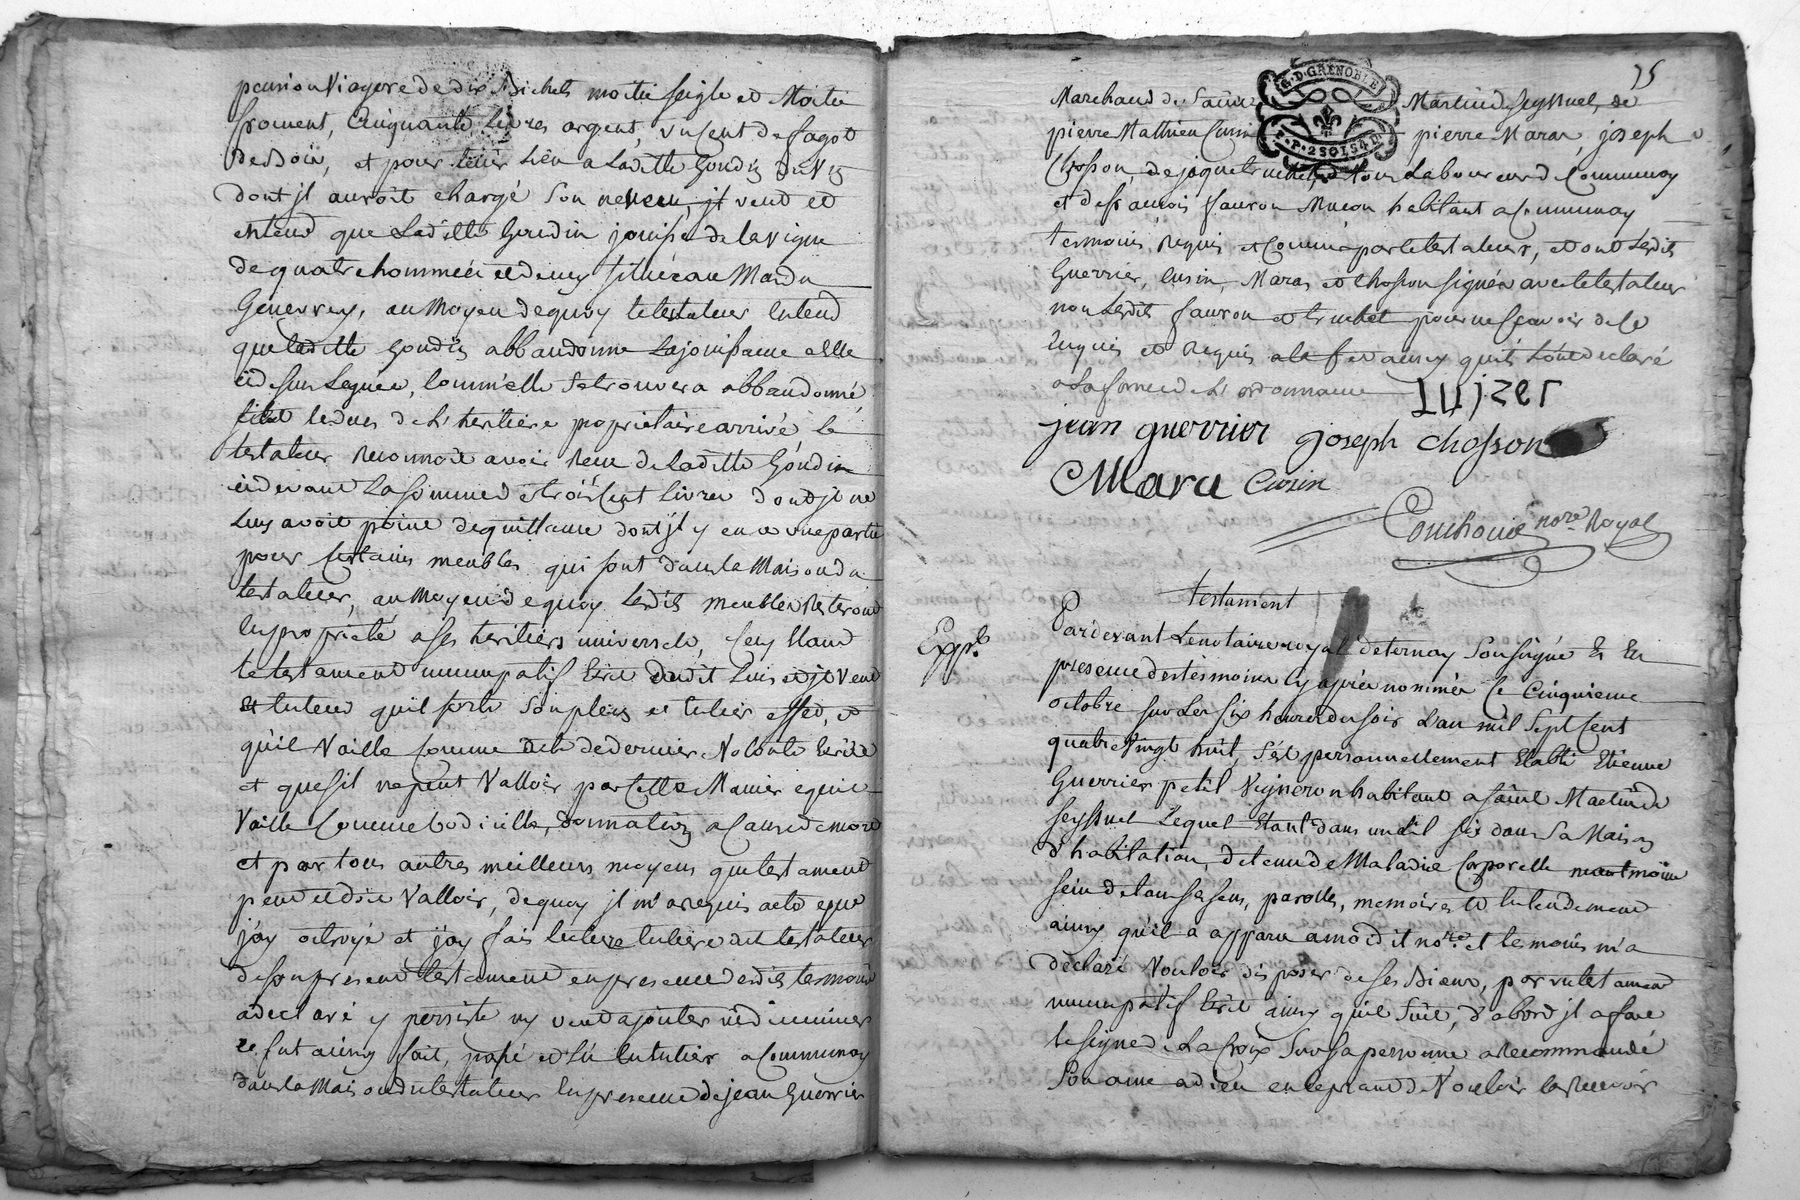 pension Viagere de dix Bichets moitié seigle et Moitié
froment, Cinquante livres argent, un cent de fagot
de Bois, et pour tenir lieu a Laditte Goudin du Vin
dont jl auroit chargé son neveu, jl veut et
entend que Laditte Goudin jouisse de la vigne
de quatre hommées et demy située au Mas du
Genevrey, au Moyen de quoy le testateur Entend
que laditte Goudin abbandonne La jouissance a Elle
cidessus Leguée, comm'elle se trouvera abbandonné
le deces de L'heritiere proprietaire arrivé, le
testateur Reconnoit avoir Receu de Laditte Goudin
cidevant La somme de trois cent Livres dont jl ne
Luy avoit point de quittance dont jl y en a une partie
pour certains meubles qui sont dans la Maison du
testateur, au Moyen de quoy Lesdits meubles Resteront
En propriété a ses heritiers universels, Cecy Etant
le testament nuncupatif Ecrit dudit jl veut
Et entend qu'il sorte son plein et entier effet, et
qu'il Vaille Comme de derniere Volonté Ecrite
et que s'il ne peut Valloir par cette Manier equi
Vaille Comme Codicille, donnation a cause de mort
et par tous autres meilleurs moyens que testament
peut et doit Valloir, de quoy jl m'a requis acte que
j'ay octroyé et j'ay fait lecture Entiere au testateur
de son present testament en presence desdits temoins
a declaré y persister ny vouloir ajouter ni diminuer
ce fut ainsy fait, passé et Lû En entier a Communay
dans la Maison du testateur En presence de jean Guerrier
75
Marchand de Saint Martin de Seyssuel, de
pierre Mathieu Cusin pierre Mara, joseph
Chosson, de jaque truchet, tous Laboureurs de Communay
et de françois fauron Macon habitant a Communay
temoins Requis et Connus par le testateur, et ont Lesdits
Guerrier, Cusin, Mara, et Chosson signés avec le testateur
non Lesdits fauron et truchet pour ne sçavoir de ce
Enquis et Requis ainsy qu'ils L'ont declaré
a La forme de L'ordonnance
jean guerrier joseph chosson
Mara Cusin
Couchoud no.re Royal
testament
Expé.
Pardevant Le notaire royal de ternay Soussigné Et En
presence des temoins Cy aprés nommés Le Cinquieme
octobre sur Les six heures du soir L'an mil Sept Cent
quatre Vingt huit, s'est personnellement Etabli Etienne
Guerrier petit Vigneron habitant a Saint Martin de
Seyssuel Lequel Etant dans un lit sis dans Sa Maison
d'habitation, detenu de Maladie Corporelle neantmoins
sein de tous ses sens, parolles, memoires et Entendement
ainsy qu'il a apparu a moi dit no.re et temoins m'a
declaré Vouloir disposer de ses Biens, par un testament
nuncupatif Ecrit ainsy qu'il Suit, d'abord jl a fait
le signe de La Croix Sur sa personne a recommandé
Son ame a dieu en le priant de Vouloir la Recevoir